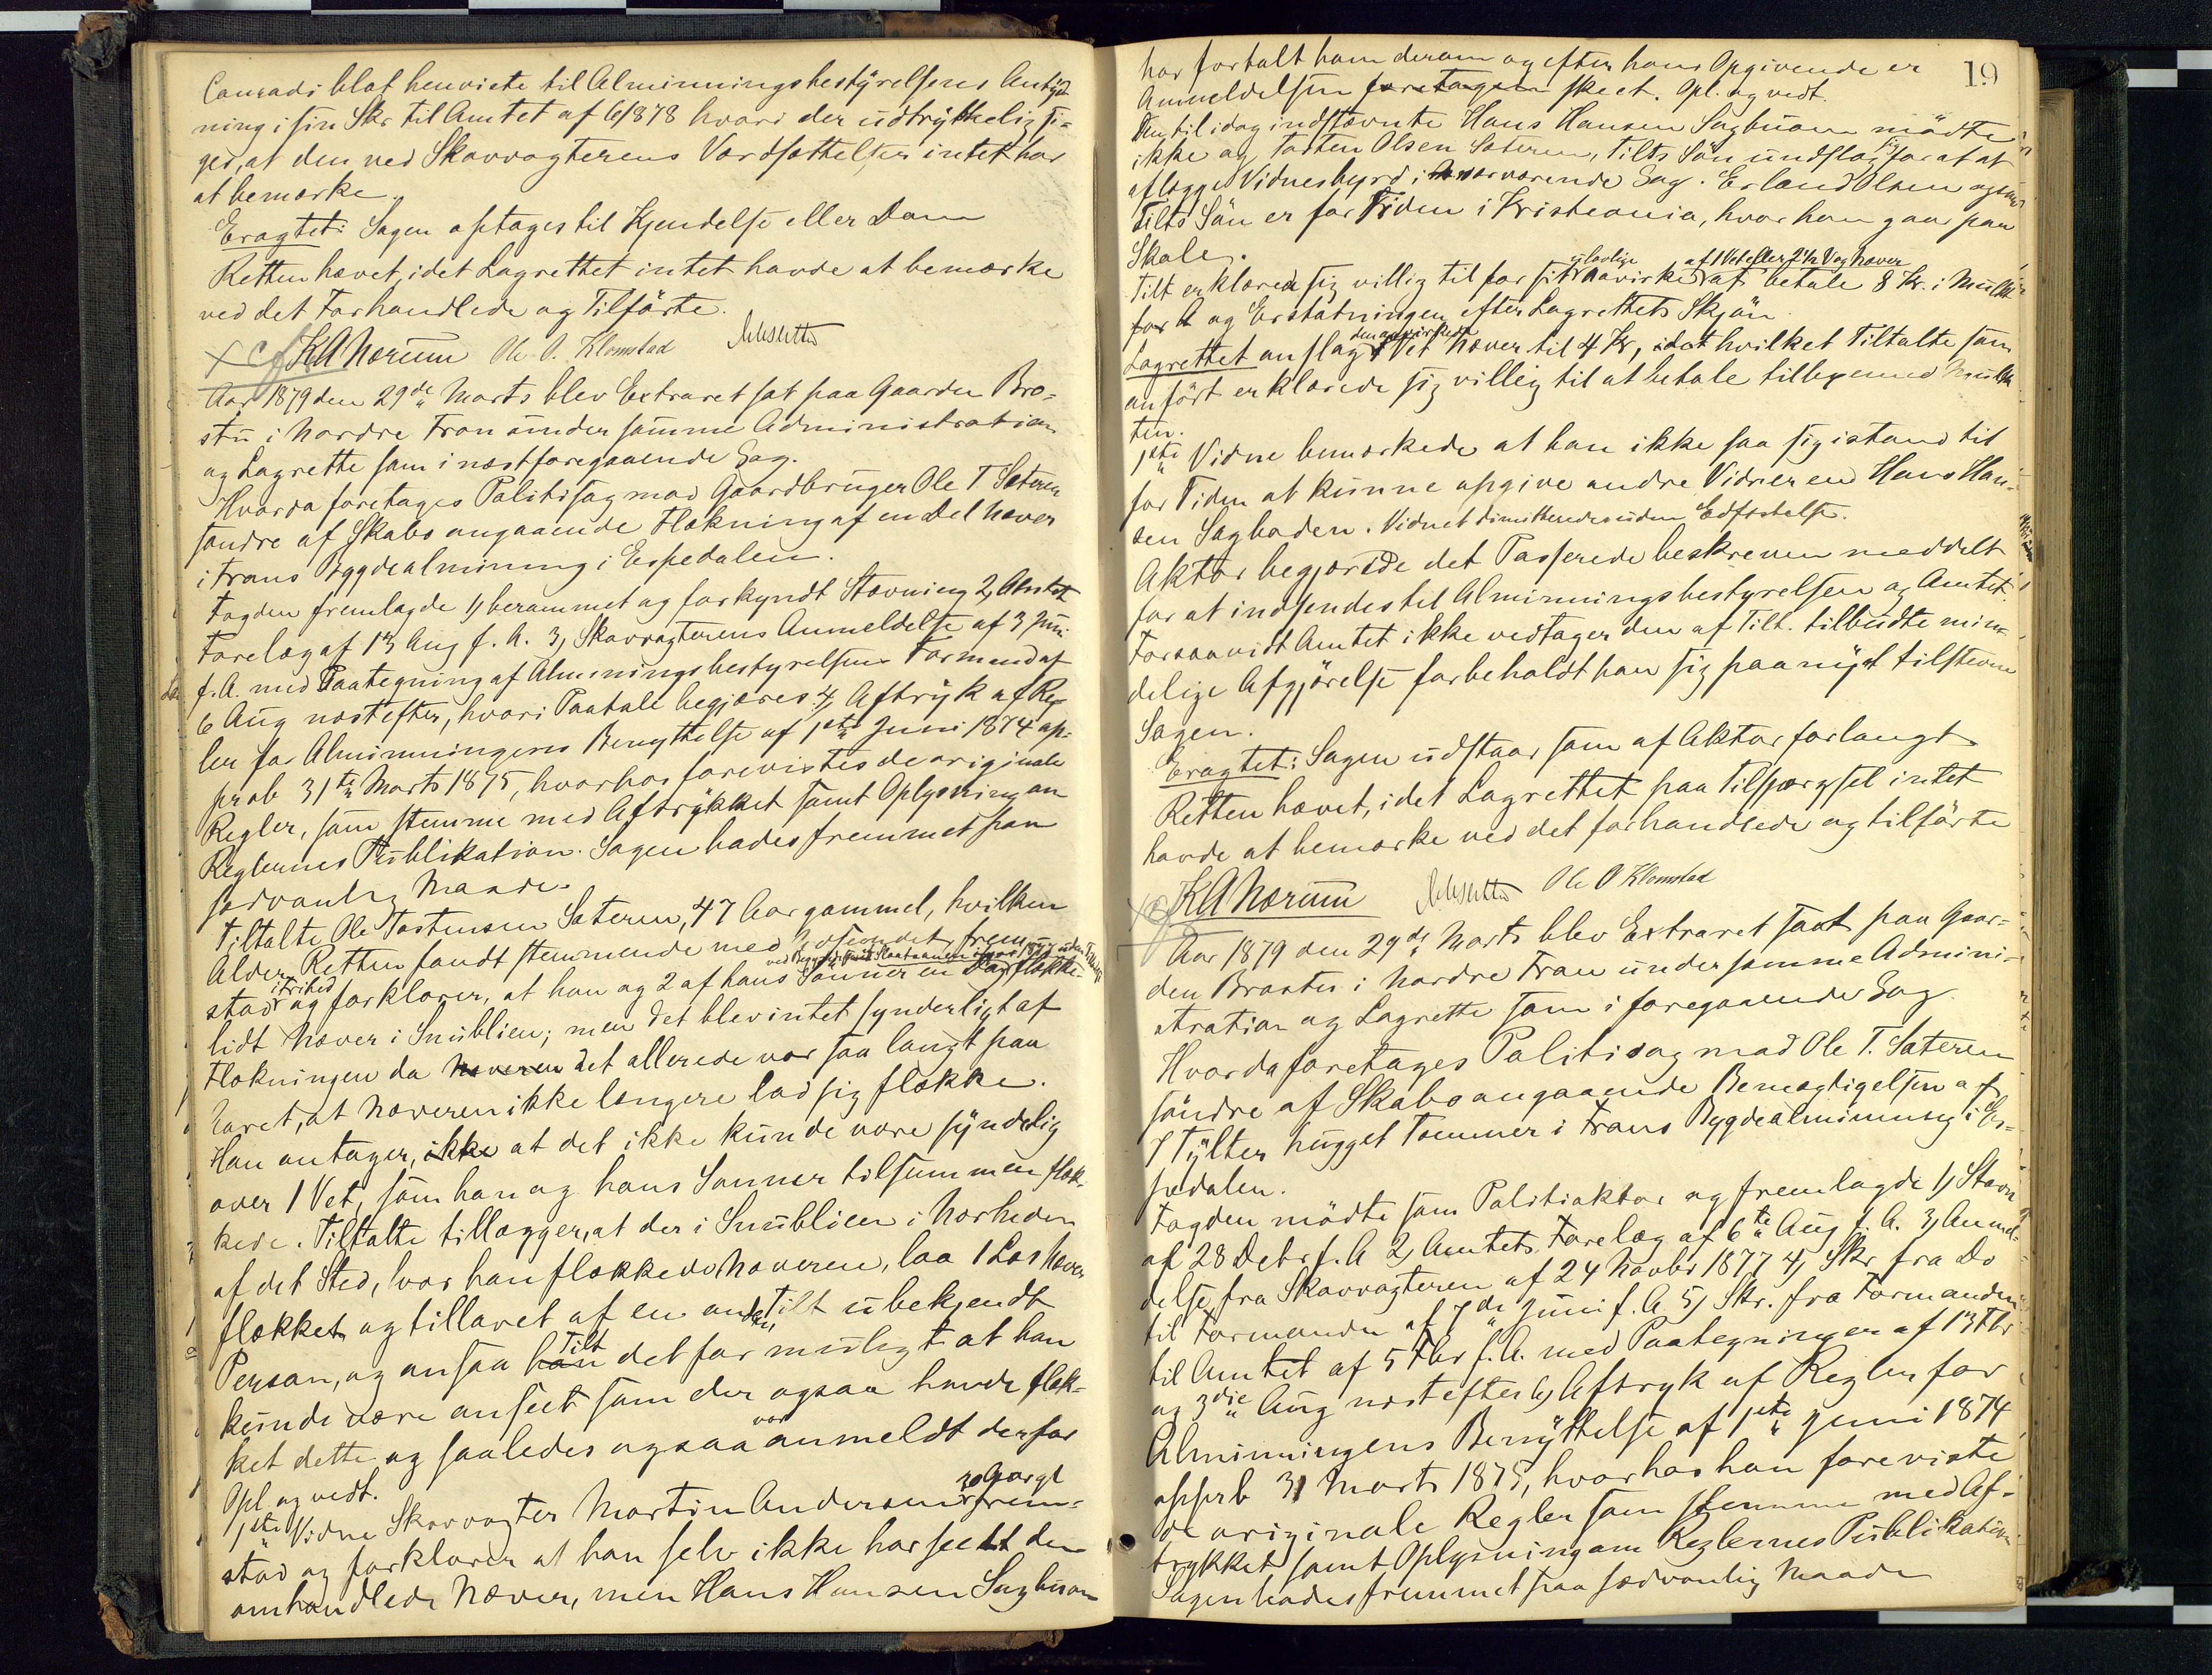 Conradi blot henviste til Almindingsbestyrelsens Antyd-
ning i sin Skr til Amtet af 6/8 78 hvori der udtrykkelig si-
ges, at den ved Skovvogterens Værdsættelser intet har
at bemærke.
Eragtet: Sagen optages til Kjendelse eller Dom
Retten hævet, idet Lagrettet intet havde at bemærke
ved det Forhandlede og Tilførte.
KANærum Ole O. Klomstad
Aar 1879 den 29de Marts blev Extraret sat paa Gaarden Bro-
stu i Nordre Fron under samme Administration
og Lagrette som i næstforegaaende Sag.
Hvorda foretages Politisag mod Gaardbruger Ole T Sæteren
søndre af Skabo angaaende Flækning af en Del Næver
i Frons Bygdealminding i Espedalen.
Fogden fremlagde 1, berammet og forkyndt Stævning 2, Amtets
Forelæg af 13 Aug f. A. 3, Skovvogterens Anmeldelse af 3 Juni
f. A. med Paategning af Almindingsbestyrelsens Formand af
6 Aug næstefter, hvori Paatale begjæres 4, Aftryk af Reg-
ler for Almindingens Benyttelse af 1ste Juni 1874 ap-
prob 31te Marts 1875, hvorhos forevistes de originale
Regler, som stemme med Aftrykket samt Oplysning om
Reglernes Publikation. Sagen hades fremmet paa
sædvanlig Maade.
Tiltalte Ole Tostensen Sæteren, 47 Aar gammel, hvilken
Alder Retten fandt stemmende med Udseendet, frem-
stod i Frihed og forklarer, at han og 2 af hans Sønner en Dag flække
lidt Næver i Snublien; men det blev intet synderligt af
Flækningen da Næveren det allerede var saa langt paa
Aaret, at Næveren ikke længere lod sig flække.
Han antager, ikke at det ikke kunde være synderlig
over 1 Vet, som han og hans Sønner tilsammen flæk-
kede. Tiltalte tillægger, at der i Snublien i Nærheden
af det Sted, hvor han flækkede Næveren, laa 1 Læs Næver
flækket og tillavet af en anden, Tilt ubekjendt
Person, og ansaa han Tilt det for muligt at han
kunde være anseet som den ogsaa havde flæk-
ket dette og saaledes ogsaa var anmeldt derfor
Opl og vedt.
1ste Vidne Skovvogter Martin Andersen frem-
stod og forklarer at han selv ikke har seet den
omhandlede Næver, men Hans Hansen Sagbuen
19
har fortalt ham derom og efter hans Opgivende er
Anmeldelsen foretagen skeet. Opl. og vedt.
Den til idag indstævnte Hans Hansen Sagbuen mødte
ikke og Tosten Olsen Sæteren, Tilts Søn undslog sig for at
aflægge Vidnesbyrd i nærværende Sag. Erland Olsen ogsaa
Tilts Søn er for Tiden i Kristiania, hvor han gaar paa
Skole.
Tilt erklærede sig villig til for sit ulovlige Navirke af 1 Vet eller 2 1/2 Vog Næver at betale 8 Kr. i Mulkt
for A og Erstatningen efter Lagrettets Skjøn
Lagrettet anslog den anvirkede 1 Vet Næver til 4 Kr, idet hvilket Tiltalte som
anført erklærede sig villig til at betale tilligemed Mulk-
ten.
1ste Vidne bemærkede at han ikke saa sig istand til
for Tiden at kunne opgive andre Vidner end Hans Han-
sen Sagbaden. Vidnet dimitteredes uden Edfæstelse.
Aktor begjærede det Passerede beskreven meddelt
for at indsendes til Almindingsbestyrelsen og Amtet.
Forsaavidt Amtet ikke vedtager den af Tilt. tilbudte min-
delige Afgjørelse forbeholdt han sig paany at tilstevne
Sagen.
Eragtet: Sagen udstaar som af Aktor forlangt
Retten hævet, idet Lagrettet paa Tilspørgsel intet
havde at bemærke ved det forhandlede og tilførte
KANærum Ole O Klomstad
Aar 1879 den 29de Marts blev Extraret sat paa Gaar-
den Brostu i Nordre Fron under samme Admini-
stration og Lagrette som i foregaaende Sag.
Hvorda foretages Politisag mod Ole T. Sæteren
søndre af Skabo angaaende Bemægtigelsen af
7 Tylter hugget Tømmer i Frons Bygdealminding i Es-
pedalen.
Fogden mødte som Politiaktor og fremlagde 1, Stævn
af 28 Debr f. A 2, Amtets Forelæg af 6te Aug f. A. 3, Anmel-
delse fra Skovvogteren af 24 Novbr 1877 4, Skr fra Do
til Formanden af 7de Juni f. A. 5, Skr. fra Formanden
til Amtet af 5 Fbr f. A. med Paategninger af 13 Fbr
og 3die Aug næstefter 6, Aftryk af Regler for
Almindingens Benyttelse af 1ste Juni 1874
apprb 31 Marts 1875, hvorhos han foreviste
de originale Regler som stemme med Af-
trykket, samt Oplysning om Reglernes Publikation
Sagen hades fremmet paa sædvanlig Maade